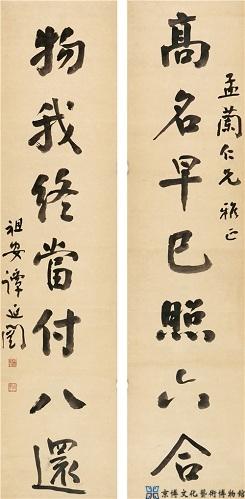 孟蘭仁兄雅正
高名早已照六合
物我終當付八還
祖安譚延闓
京博文化藝術博物館